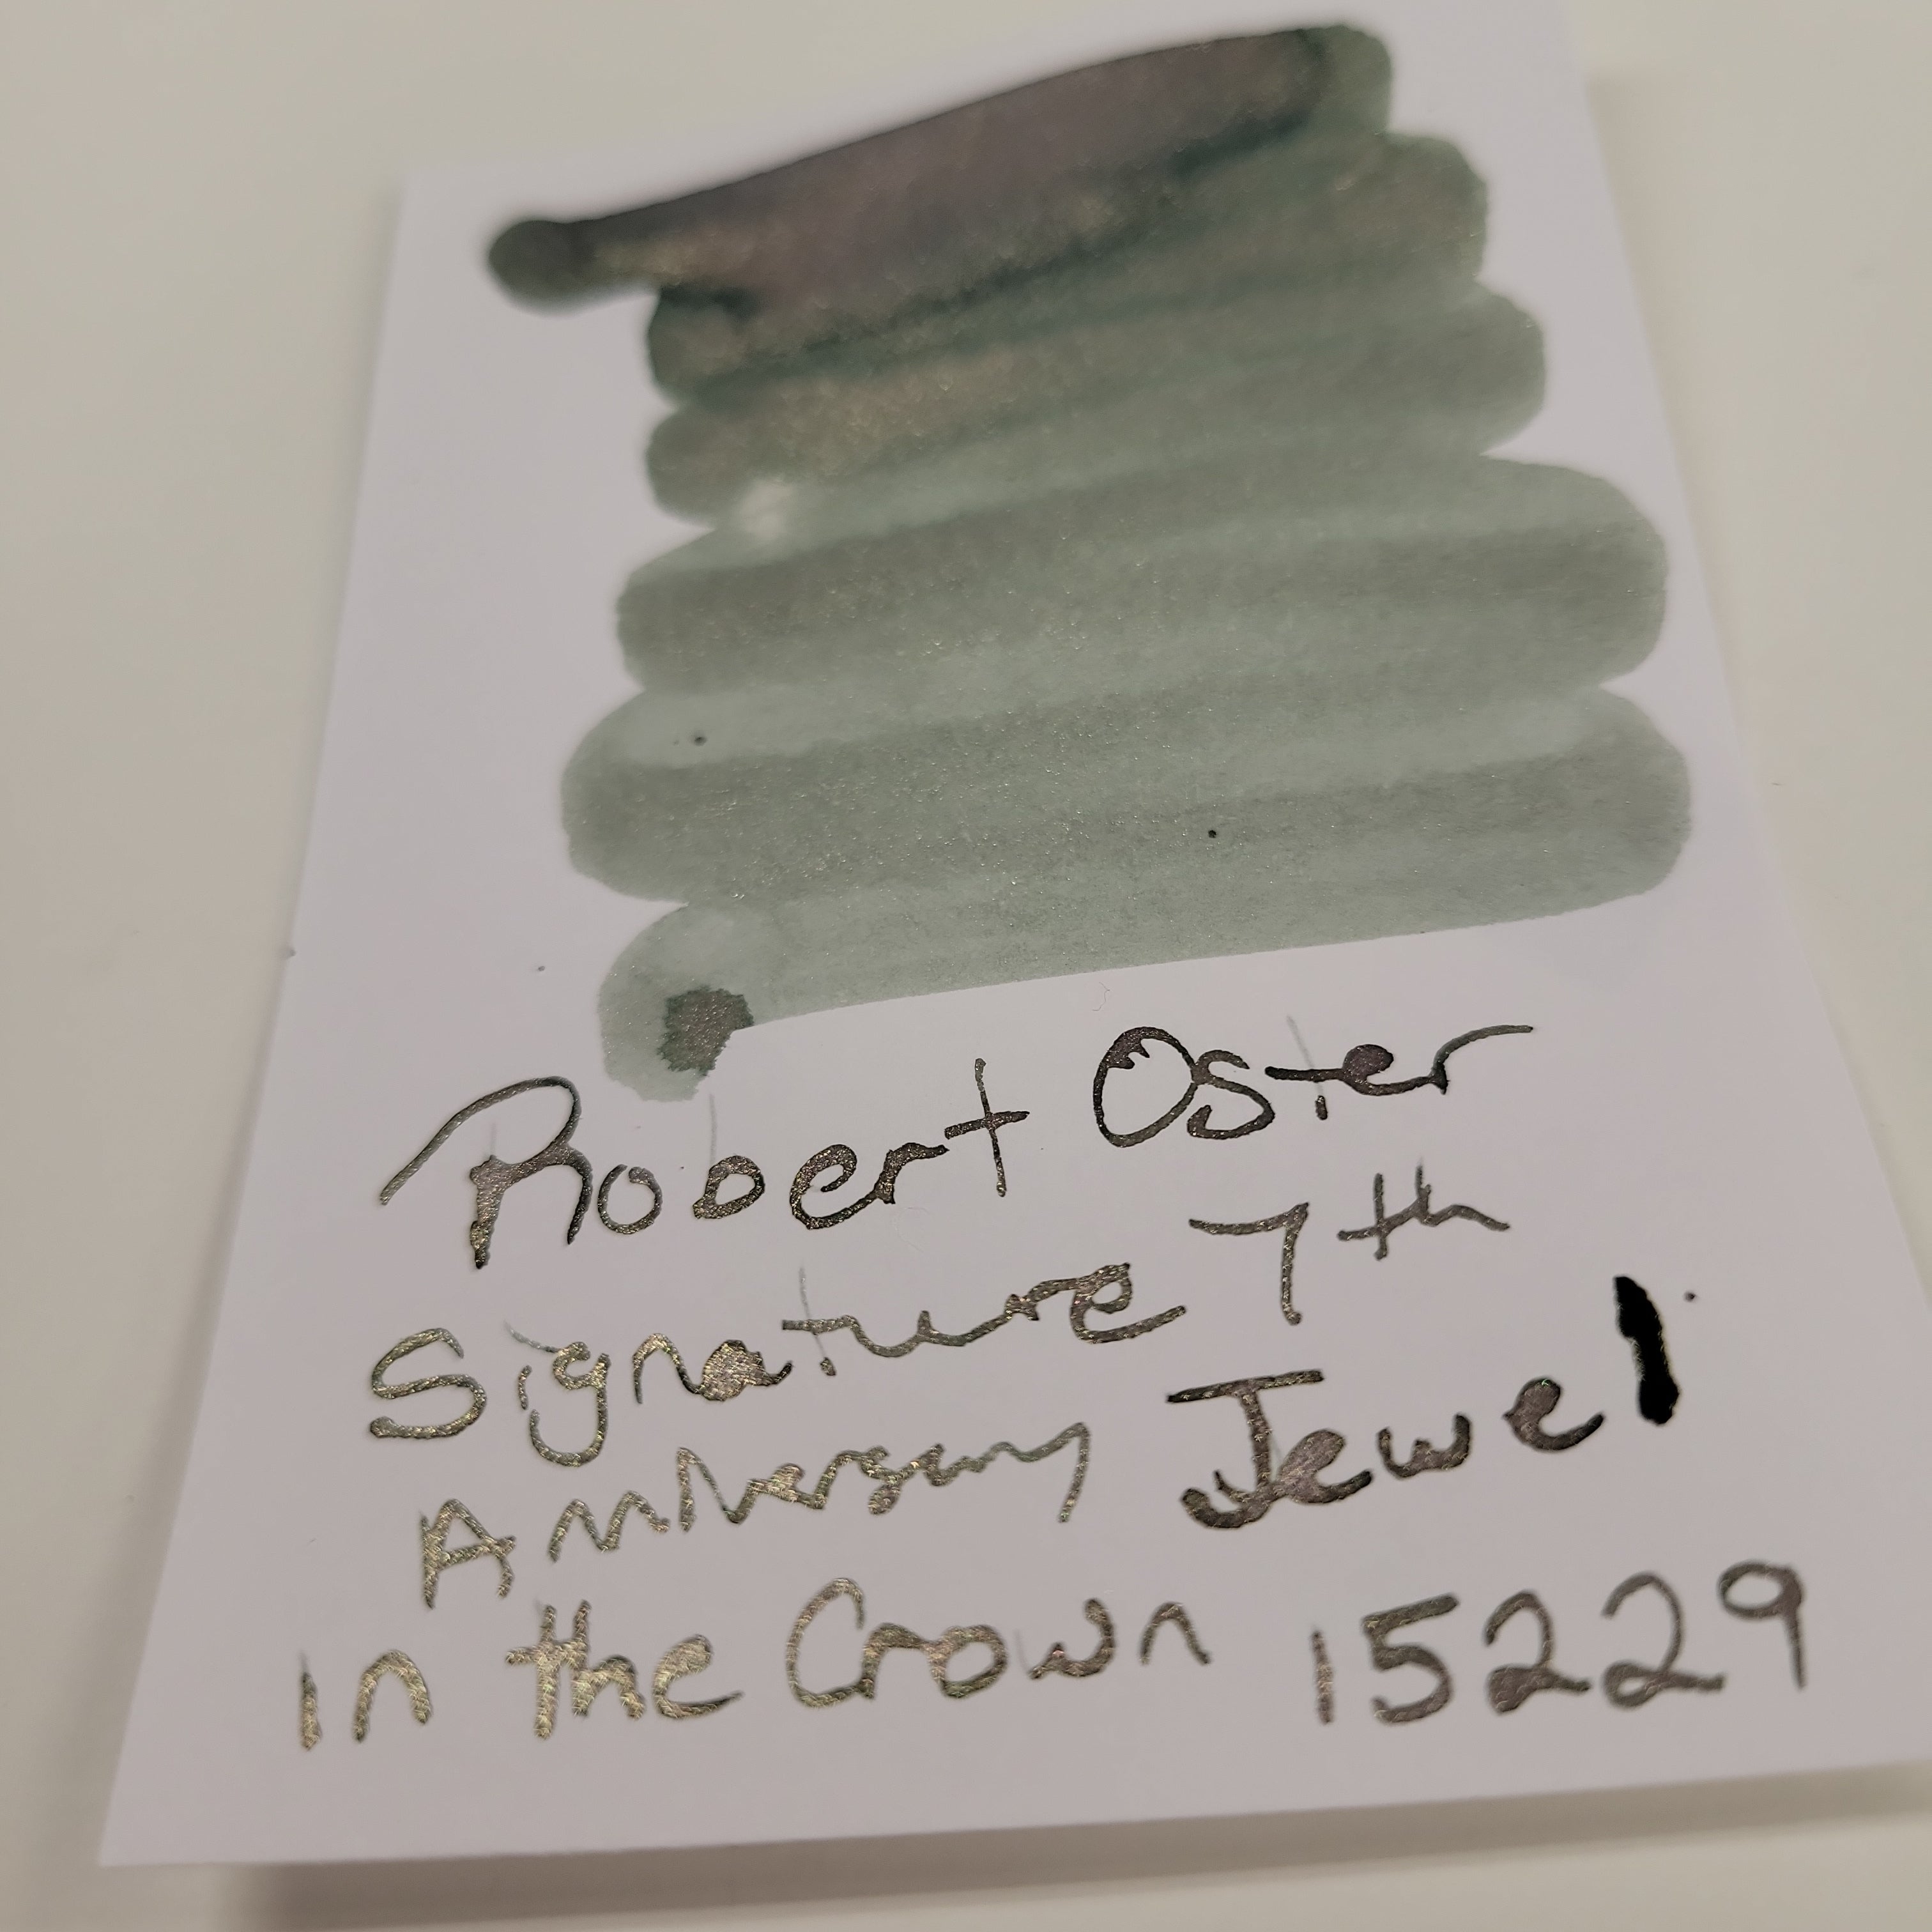 Robert Oster
Signature 7th
Anniversary Jewel
in the Crown 15229